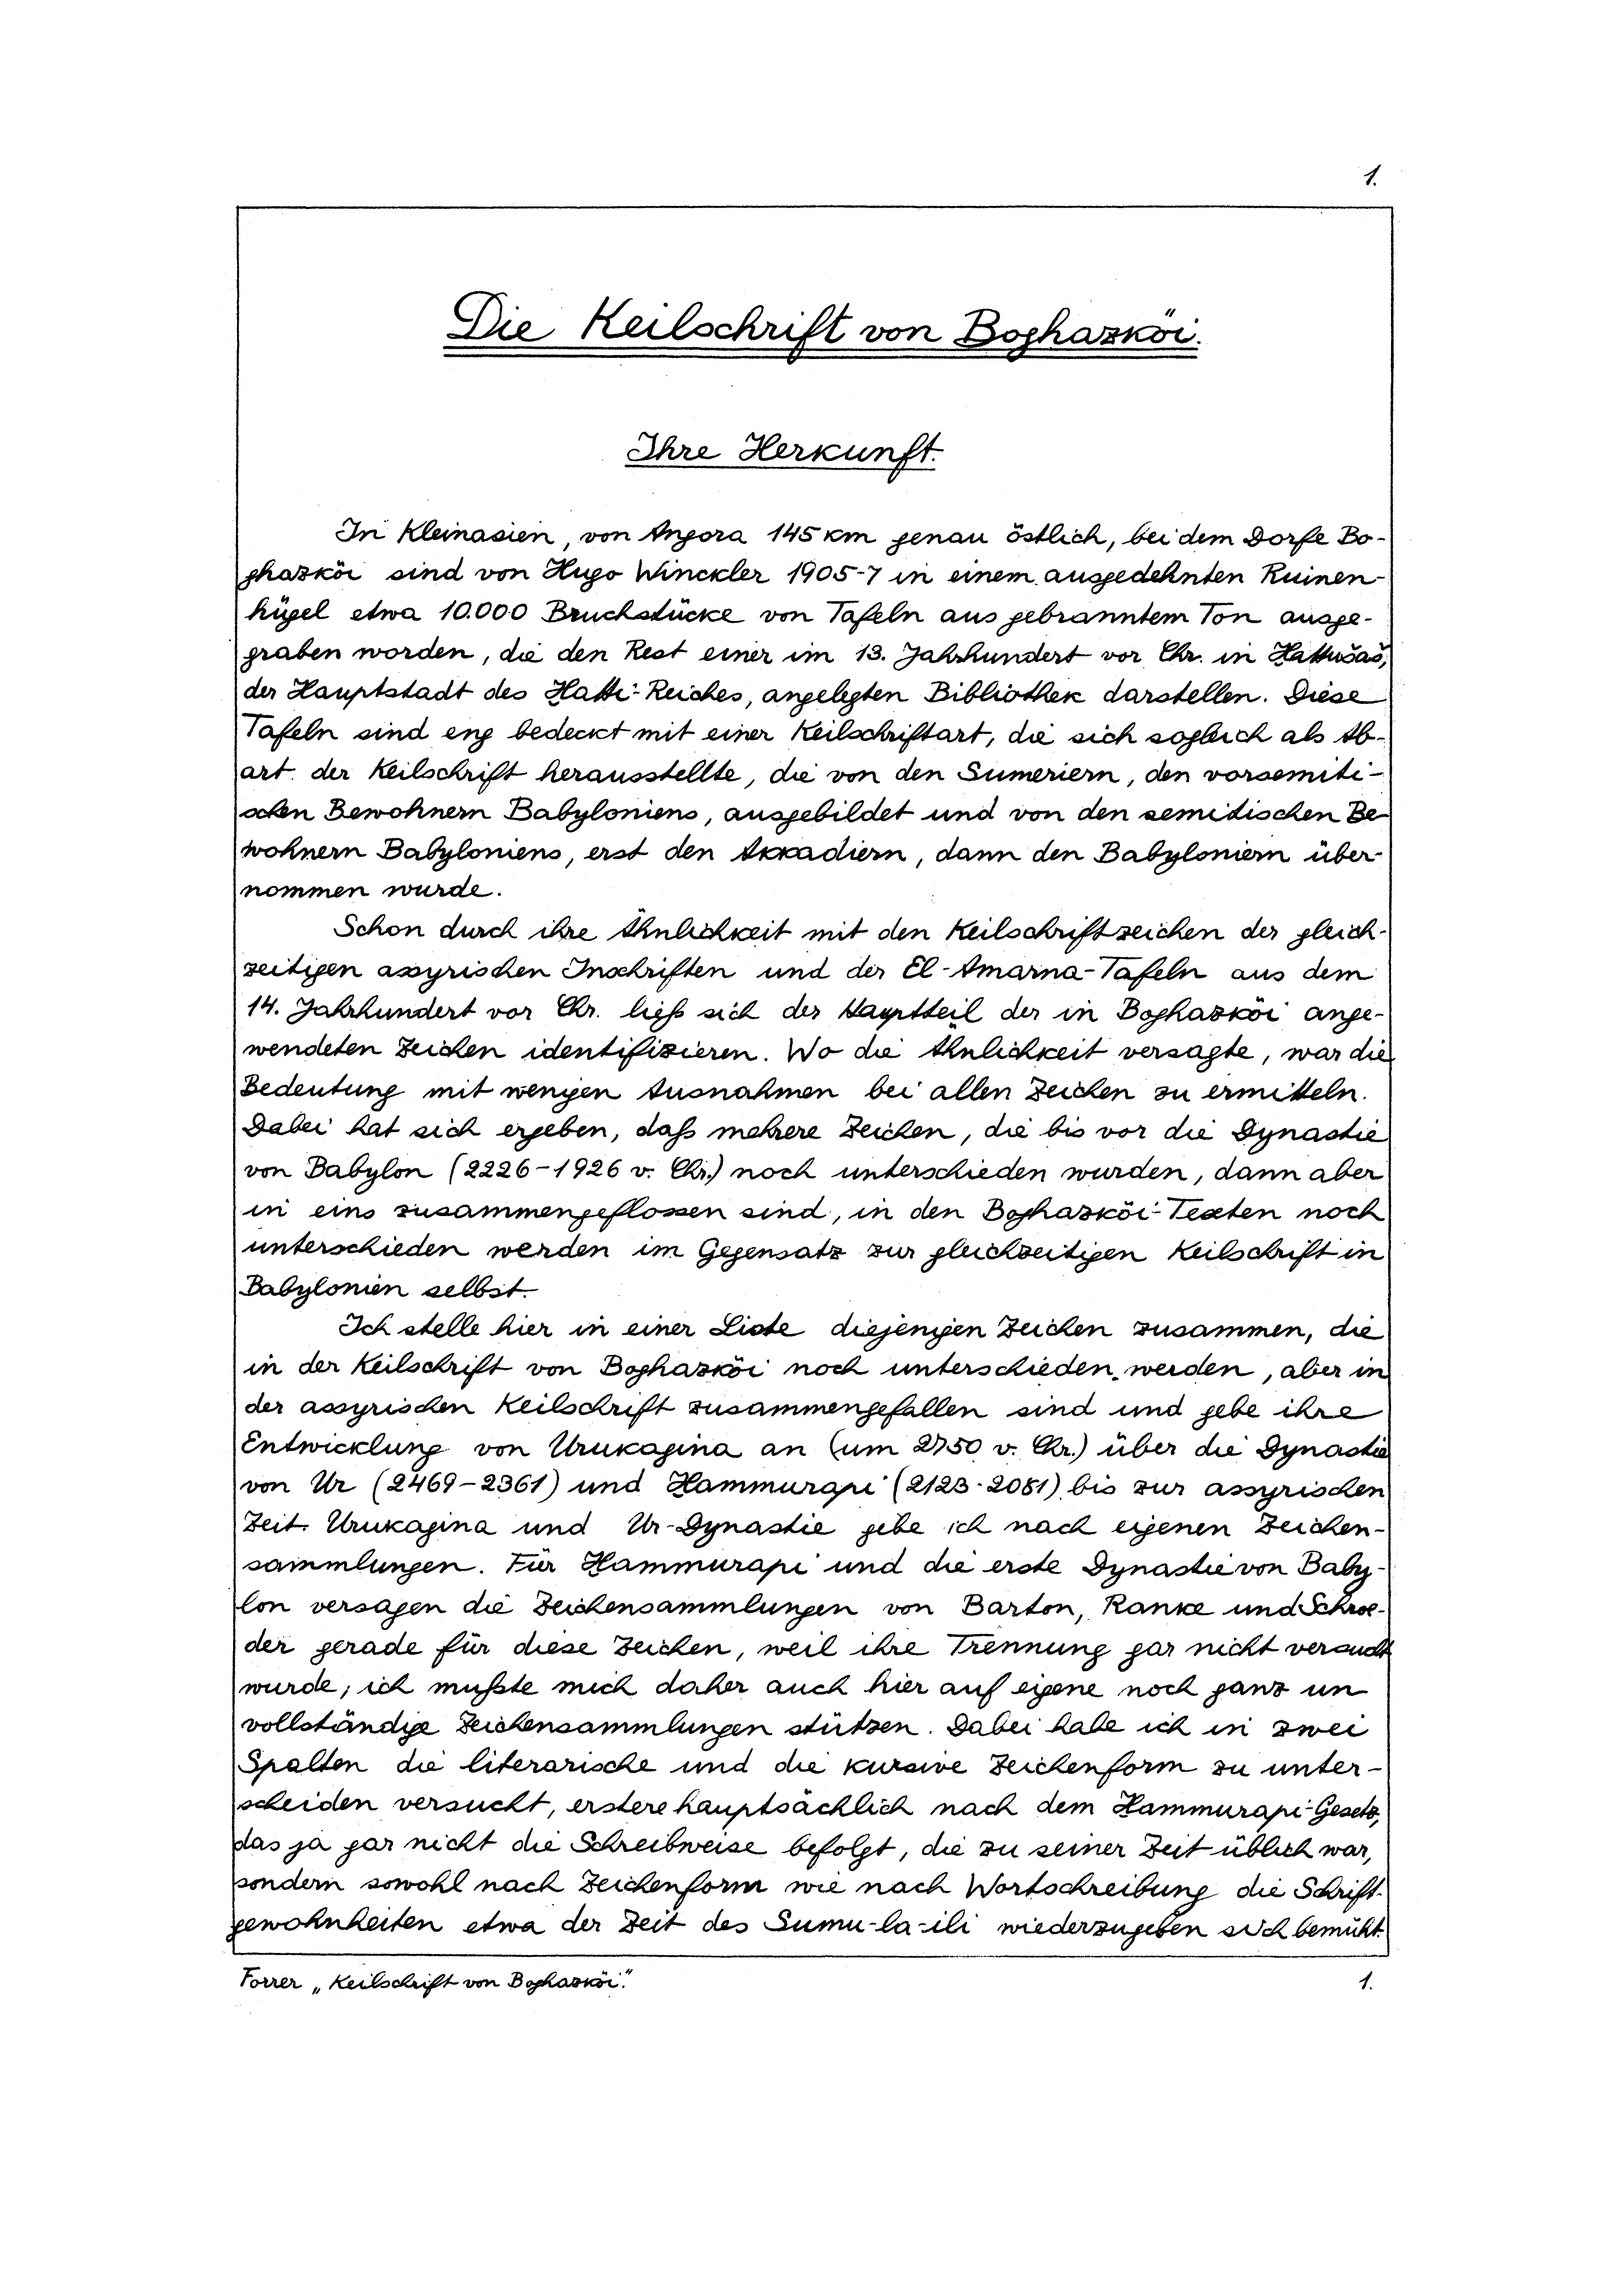 1.
Die Keilschrift von Boghazköi.
Ihre Herkunft.
In Kleinasien, von Angora 145 km genau östlich, bei dem Dorfe Bo-
ghazköi sind von Hugo Winckler 1905-7 in einem ausgedehnten Ruinen-
hügel etwa 10.000 Bruchstücke von Tafeln aus gebranntem Ton ausge-
graben worden, die den Rest einer im 13. Jahrhundert vor Chr. in Hattušaš,
der Hauptstadt des Hatti-Reiches, angelegten Bibliothek darstellen. Diese
Tafeln sind eng bedeckt mit einer Keilschriftart, die sich sogleich als Ab-
art der Keilschrift herausstellte, die von den Sumeriern, den vorsemiti-
schen Bewohnern Babyloniens, ausgebildet und von den semitischen Be-
wohnern Babyloniens, erst den Akkadiern, dann den Babyloniern über-
nommen wurde.
Schon durch ihre Ähnlichkeit mit den Keilschriftzeichen der gleich-
zeitigen assyrischen Inschriften und der El-Amarna-Tafeln aus dem
14. Jahrhundert vor Chr. ließ sich der Hauptteil der in Boghazköi ange-
wendeten Zeichen identifizieren. Wo die Ähnlichkeit versagte, war die
Bedeutung mit wenigen Ausnahmen bei allen Zeichen zu ermitteln.
Dabei hat sich ergeben, daß mehrere Zeichen, die bis vor die Dynastie
von Babylon (2226-1926 v. Chr.) noch unterschieden wurden, dann aber
in eins zusammengeflossen sind, in den Boghazköi-Texten noch
unterschieden werden im Gegensatz zur gleichzeitigen Keilschrift in
Babylonien selbst.
Ich stelle hier in einer Liste diejenigen Zeichen zusammen, die
in der Keilschrift von Boghazköi noch unterschieden werden, aber in
der assyrischen Keilschrift zusammengefallen sind und gebe ihre
Entwicklung von Urukagina an (um 2750 v. Chr.) über die Dynastie
von Ur (2469-2361) und Hammurapi (2123-2081) bis zur assyrischen
Zeit. Urukagina und Ur-Dynastie gebe ich nach eigenen Zeichen-
sammlungen. Für Hammurapi und die erste Dynastie von Baby-
lon versagen die Zeichensammlungen von Barton, Ranke und Schroe-
der gerade für diese Zeichen, weil ihre Trennung gar nicht versucht
wurde; ich mußte mich daher auch hier auf eigene noch ganz un
vollständige Zeichensammlungen stützen. Dabei habe ich in zwei
Spalten die literarische und die kursive Zeichenform zu unter-
scheiden versucht, erstere hauptsächlich nach dem Hammurapi-Gesetz,
das ja gar nicht die Schreibweise befolgt, die zu seiner Zeit üblich war,
sondern sowohl nach Zeichenform wie nach Wortschreibung die Schrift-
gewohnheiten etwa der Zeit des Sumu-la-ili wiederzugeben sich bemüht.
Forrer „Keilschrift von Boghazköi". 1.